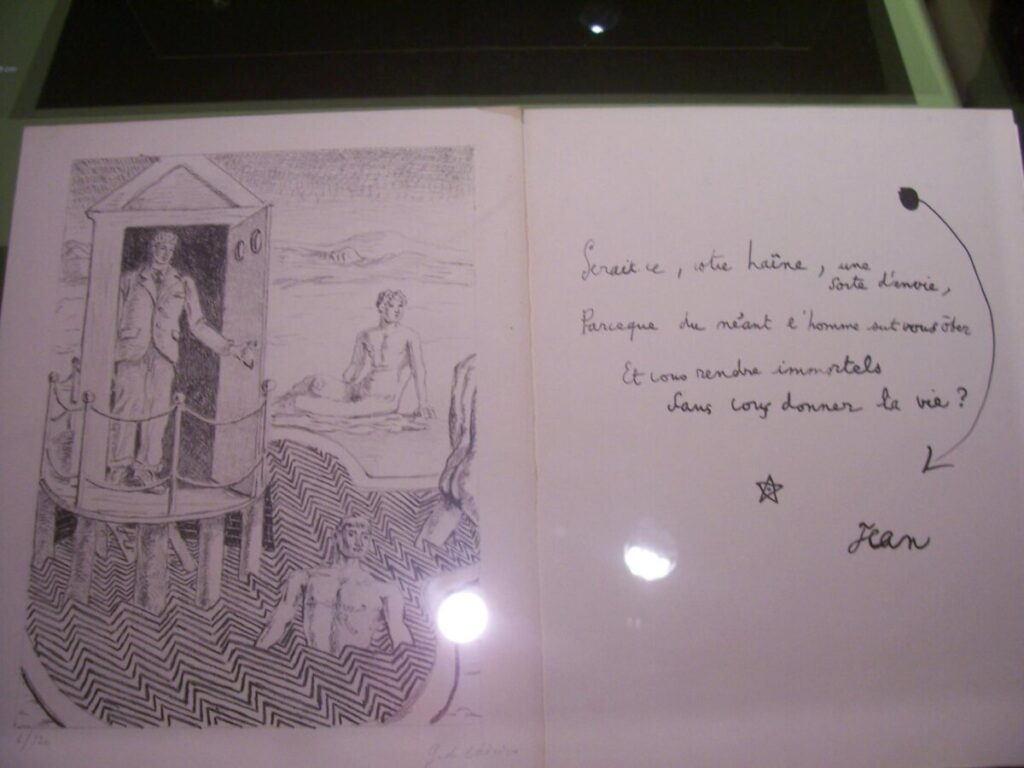 Serait ce, votre haîne, une
sorte d'envie,
Parceque du néant l'homme sut vous ôter
Et vous rendre immortels
Sans vous donner la vie ?
Jean
6/120